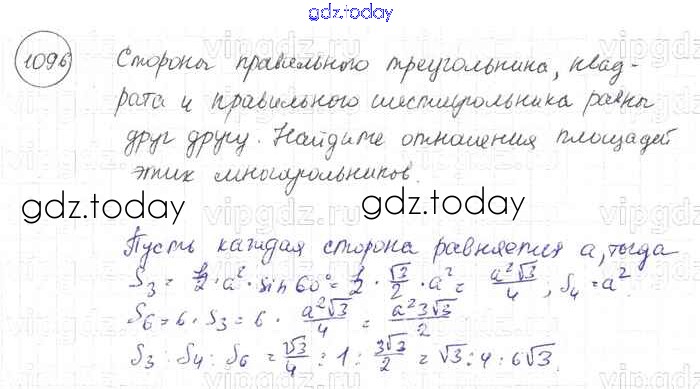 gdz.today
1096 Стороны правильного треугольника, квад-
рата и правильного шестиугольника равны
друг другу. Найдите отношения площадей
этих многоугольников.
gdz.today gdz.today
Пусть каждая сторона равняется a, тогда
S₃ = 1/2 · a² · sin 60° = 1/2 · √3/2 · a² = a²√3/4 ; S₄ = a².
S₆ = 6 · S₃ = 6 · a²√3/4 = a²3√3/2
S₃ : S₄ : S₆ = √3/4 : 1 : 3√3/2 = √3 : 4 : 6√3.